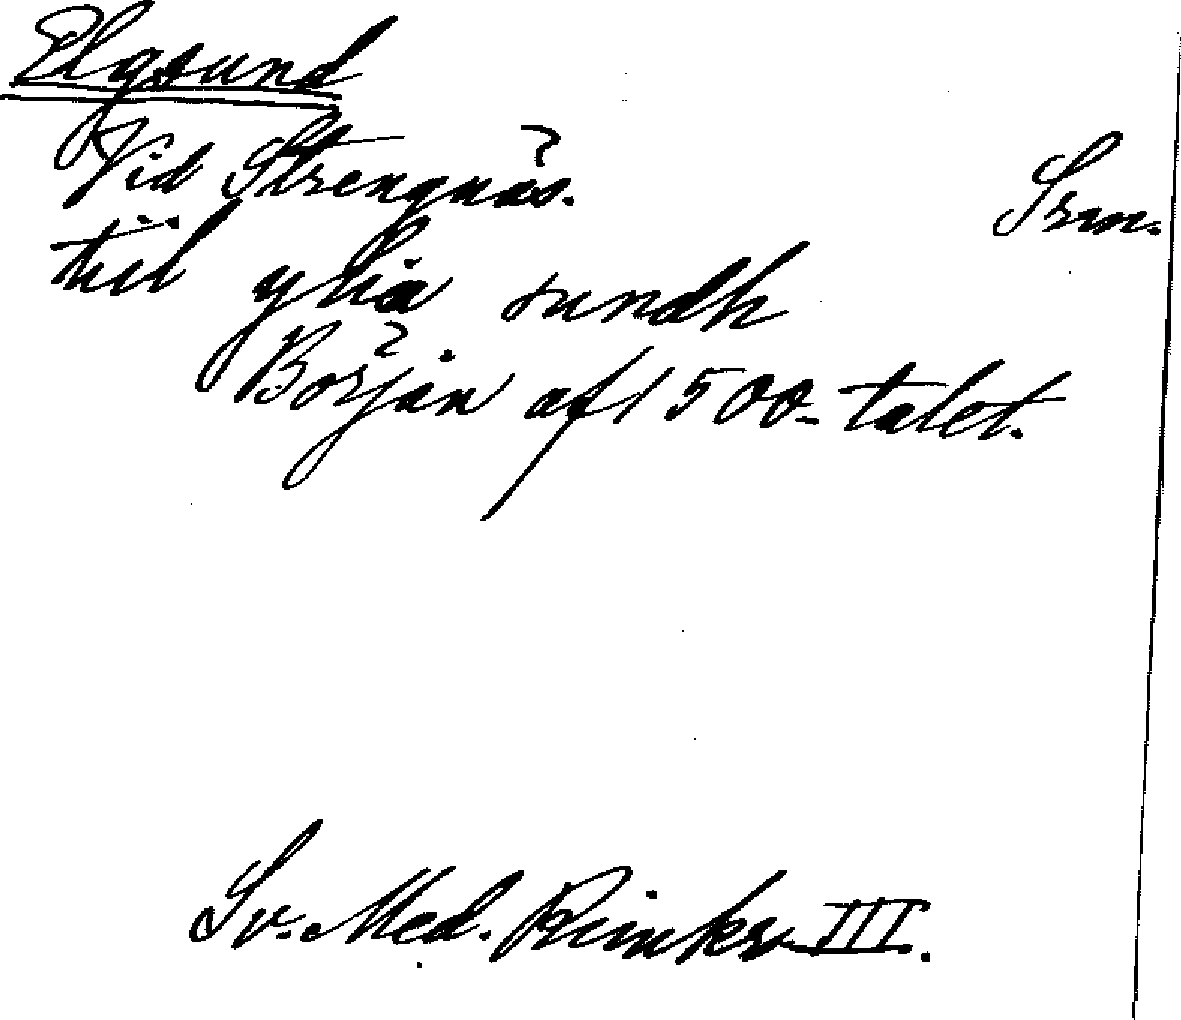 Elgsund
Vid Strengnäs. Srm.
till sundh
Början af 1500-talet.
Sv. Med. Rimkr. III.